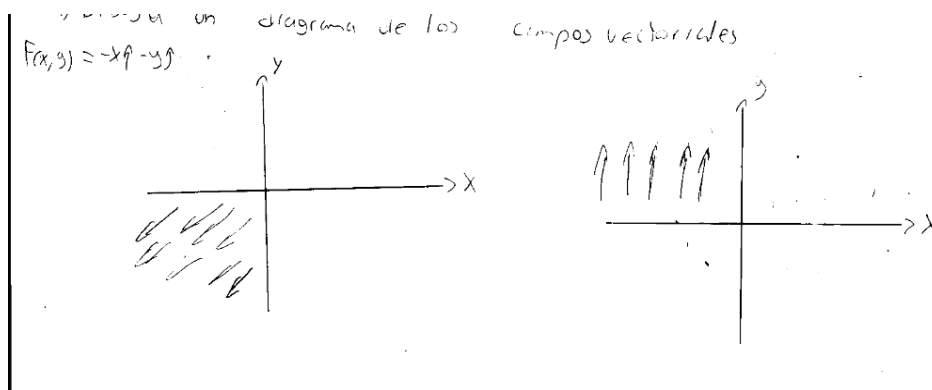 un diagrama de los campos vectoriales
F(x,y) = -x↑ -y↑
y
x
y
x